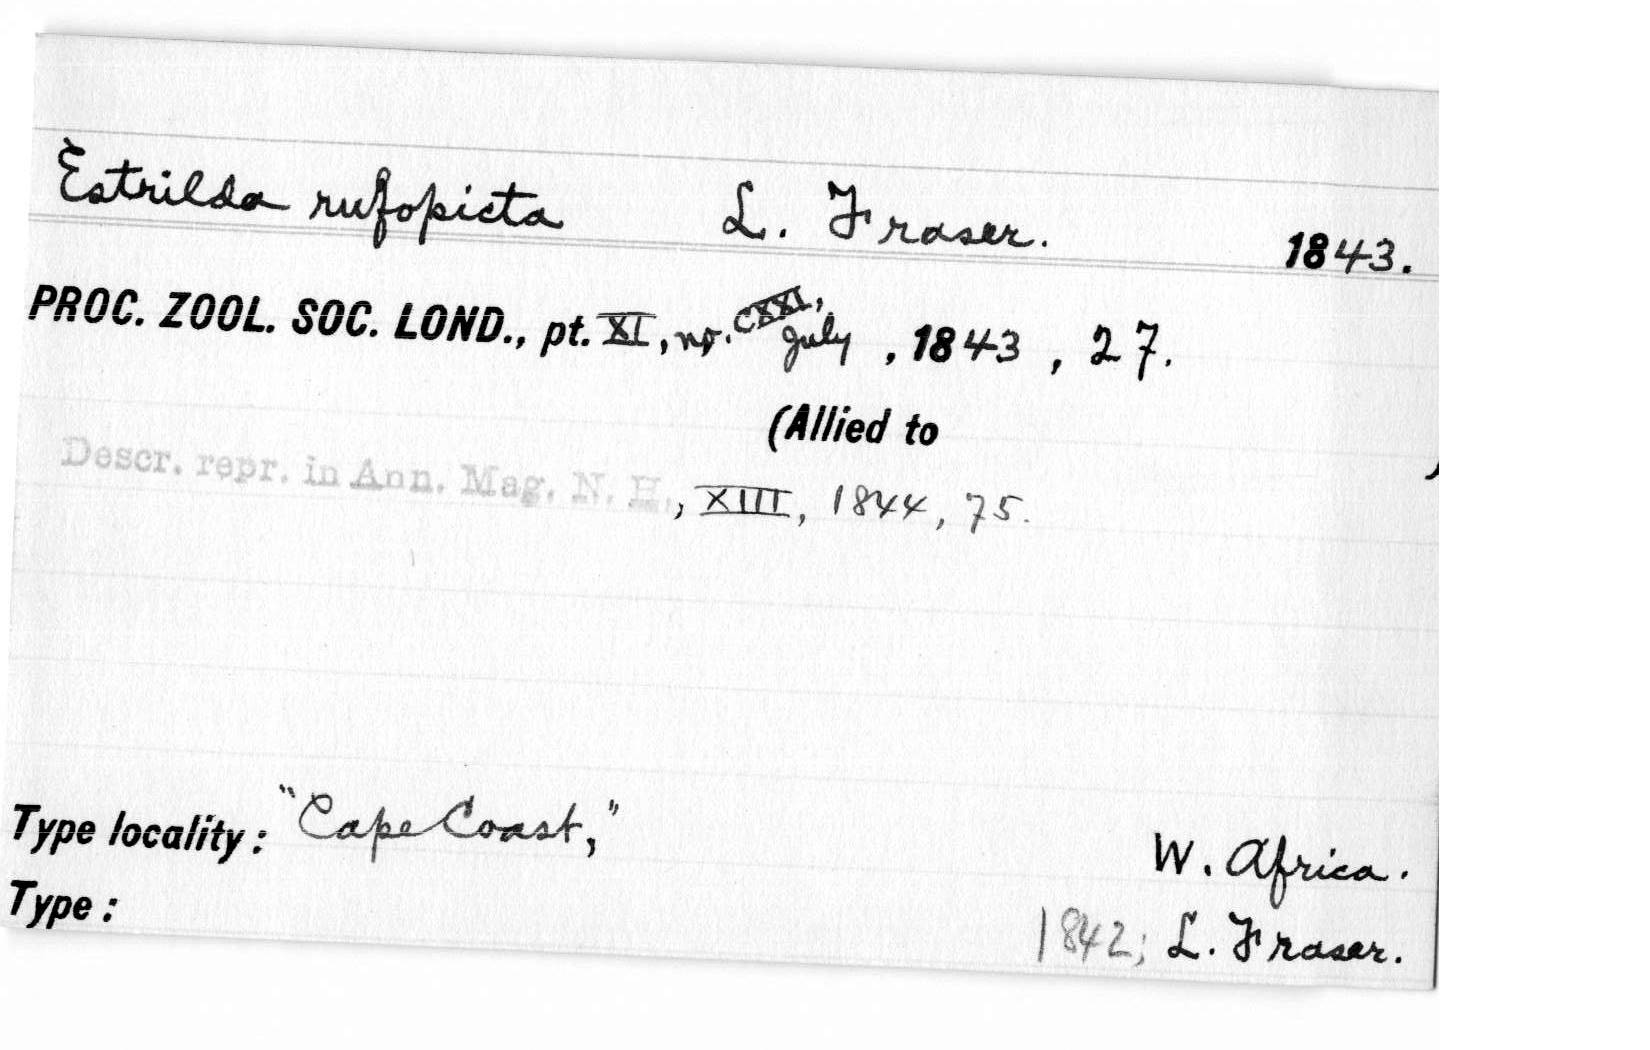 Estrilda rufopicta L. Fraser. 1843.
PROC. ZOOL. SOC. LOND., pt. XI, no. CXXI, July, 1843, 27.
(Allied to )
Descr. repr. in Ann. Mag. N. H., XIII, 1844, 75.
Type locality: "Cape Coast," W. Africa.
Type: 1842; L. Fraser.